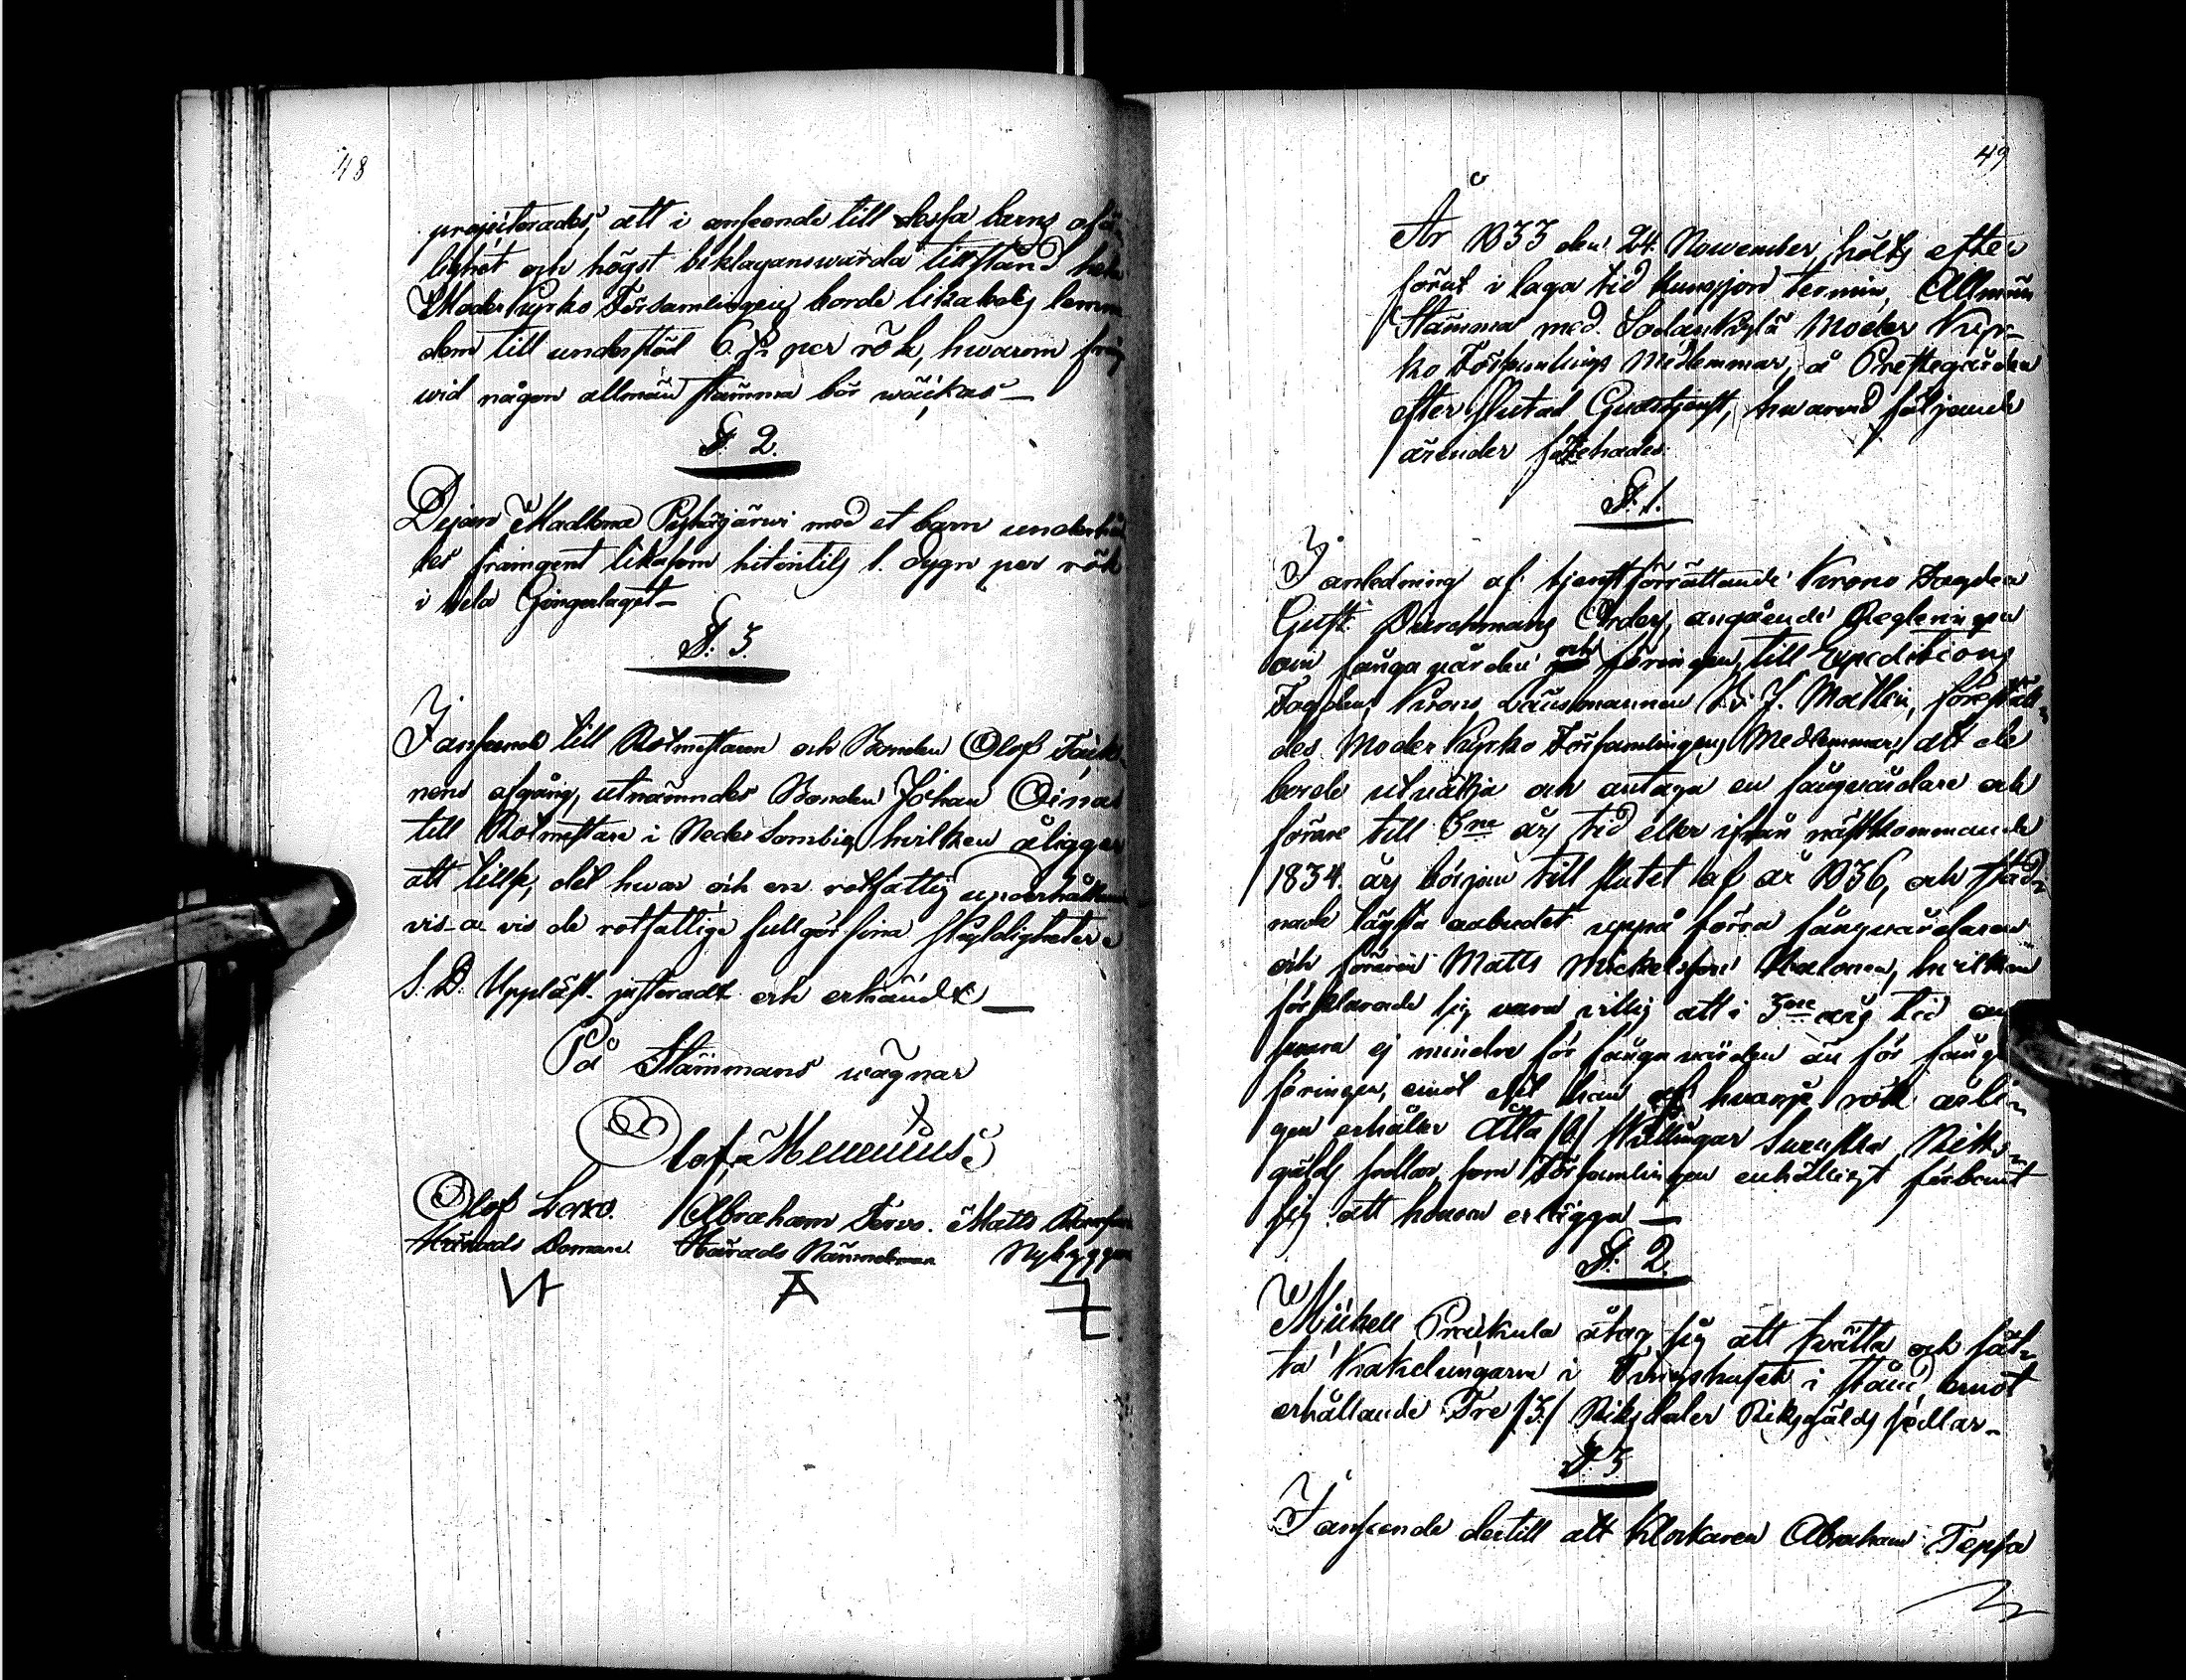 48
projecterades, att i anseende till dessa barns ofär
lighet och högst beklagansvärda tillstånd hela
Moder Kyrko Församlingen borde likaledes lemna
dem till understöd 6. per rök, hwarom fråg
wid någon allmän stämma bör wäckas —
§. 2.
Dejan Madlena Pyhäjärwi med et barn underhål
les framgent likasom hitintils 1. dygn per rök
i hela Gingerlaget —
§. 3.
I anseende till Rotmästaren och Bonden Olof
nens afgång, utnämndes Bonden Johan Oinas
till Rotmästare i Neder Sombio, hvilken åligger
att tillse, det hwar och en rotfattig underhållare
vis-a vis de rotfattige fullgör sina skyldigheter
S. D. Uppläst justeradt och erkändt —
På Stämmans wägnar
Olof Mennius
Olof Abraham Matts
Härads Domare. Härads Nämndeman Nybyggare
49
År 1833 den 24. November, hölts efter
förut i laga tid kungjord termin, Allmän
Stämma med Sodankylä Moder Kyr-
ko Församlings Medlemmar, å Prestegården
efter slutad Gudstjenst, hwarwid följande
ärender förehades.
§. 1.
I anledning af tjenstförrättande Krono Fogden
Gust. Durchmans Order, angående Regleringen
om fångavården och föringen, till Expeditions
Fogden, Krono Länsmannen J. Matlin, föreställ-
des Moder Kyrko Församlingens Medlemmar, att de
borde utvälja och antaga en fångvårdare och
förare till 3ne års tid eller ifrån nästkommande
1834. års början till slutet af år 1836, och stad-
nade lägsta anbudet uppå förra fångvårdaren
och föraren Matts Mickelsson, hvilken
förklarade sig vara villig att i 3ne års tid an
svara ej mindre för fånga vården än för fång
föringen, emot det han af hvarje rök årli-
gen erhåller Åtta /8/ skillingar Svenska Riks-
gälds sedlar, som Församlingen enhälligt förband
sig att honom erlägga —
§. 2.
Mickell åtog sig att tvätta och sät-
ta Kakelungarne i Tingshuset i stånd, emot
erhållande Tre /3/ Riksdaler Riksgälds sedlar —
§. 3
I anseende dertill att Klockaren Abraham Tepsa